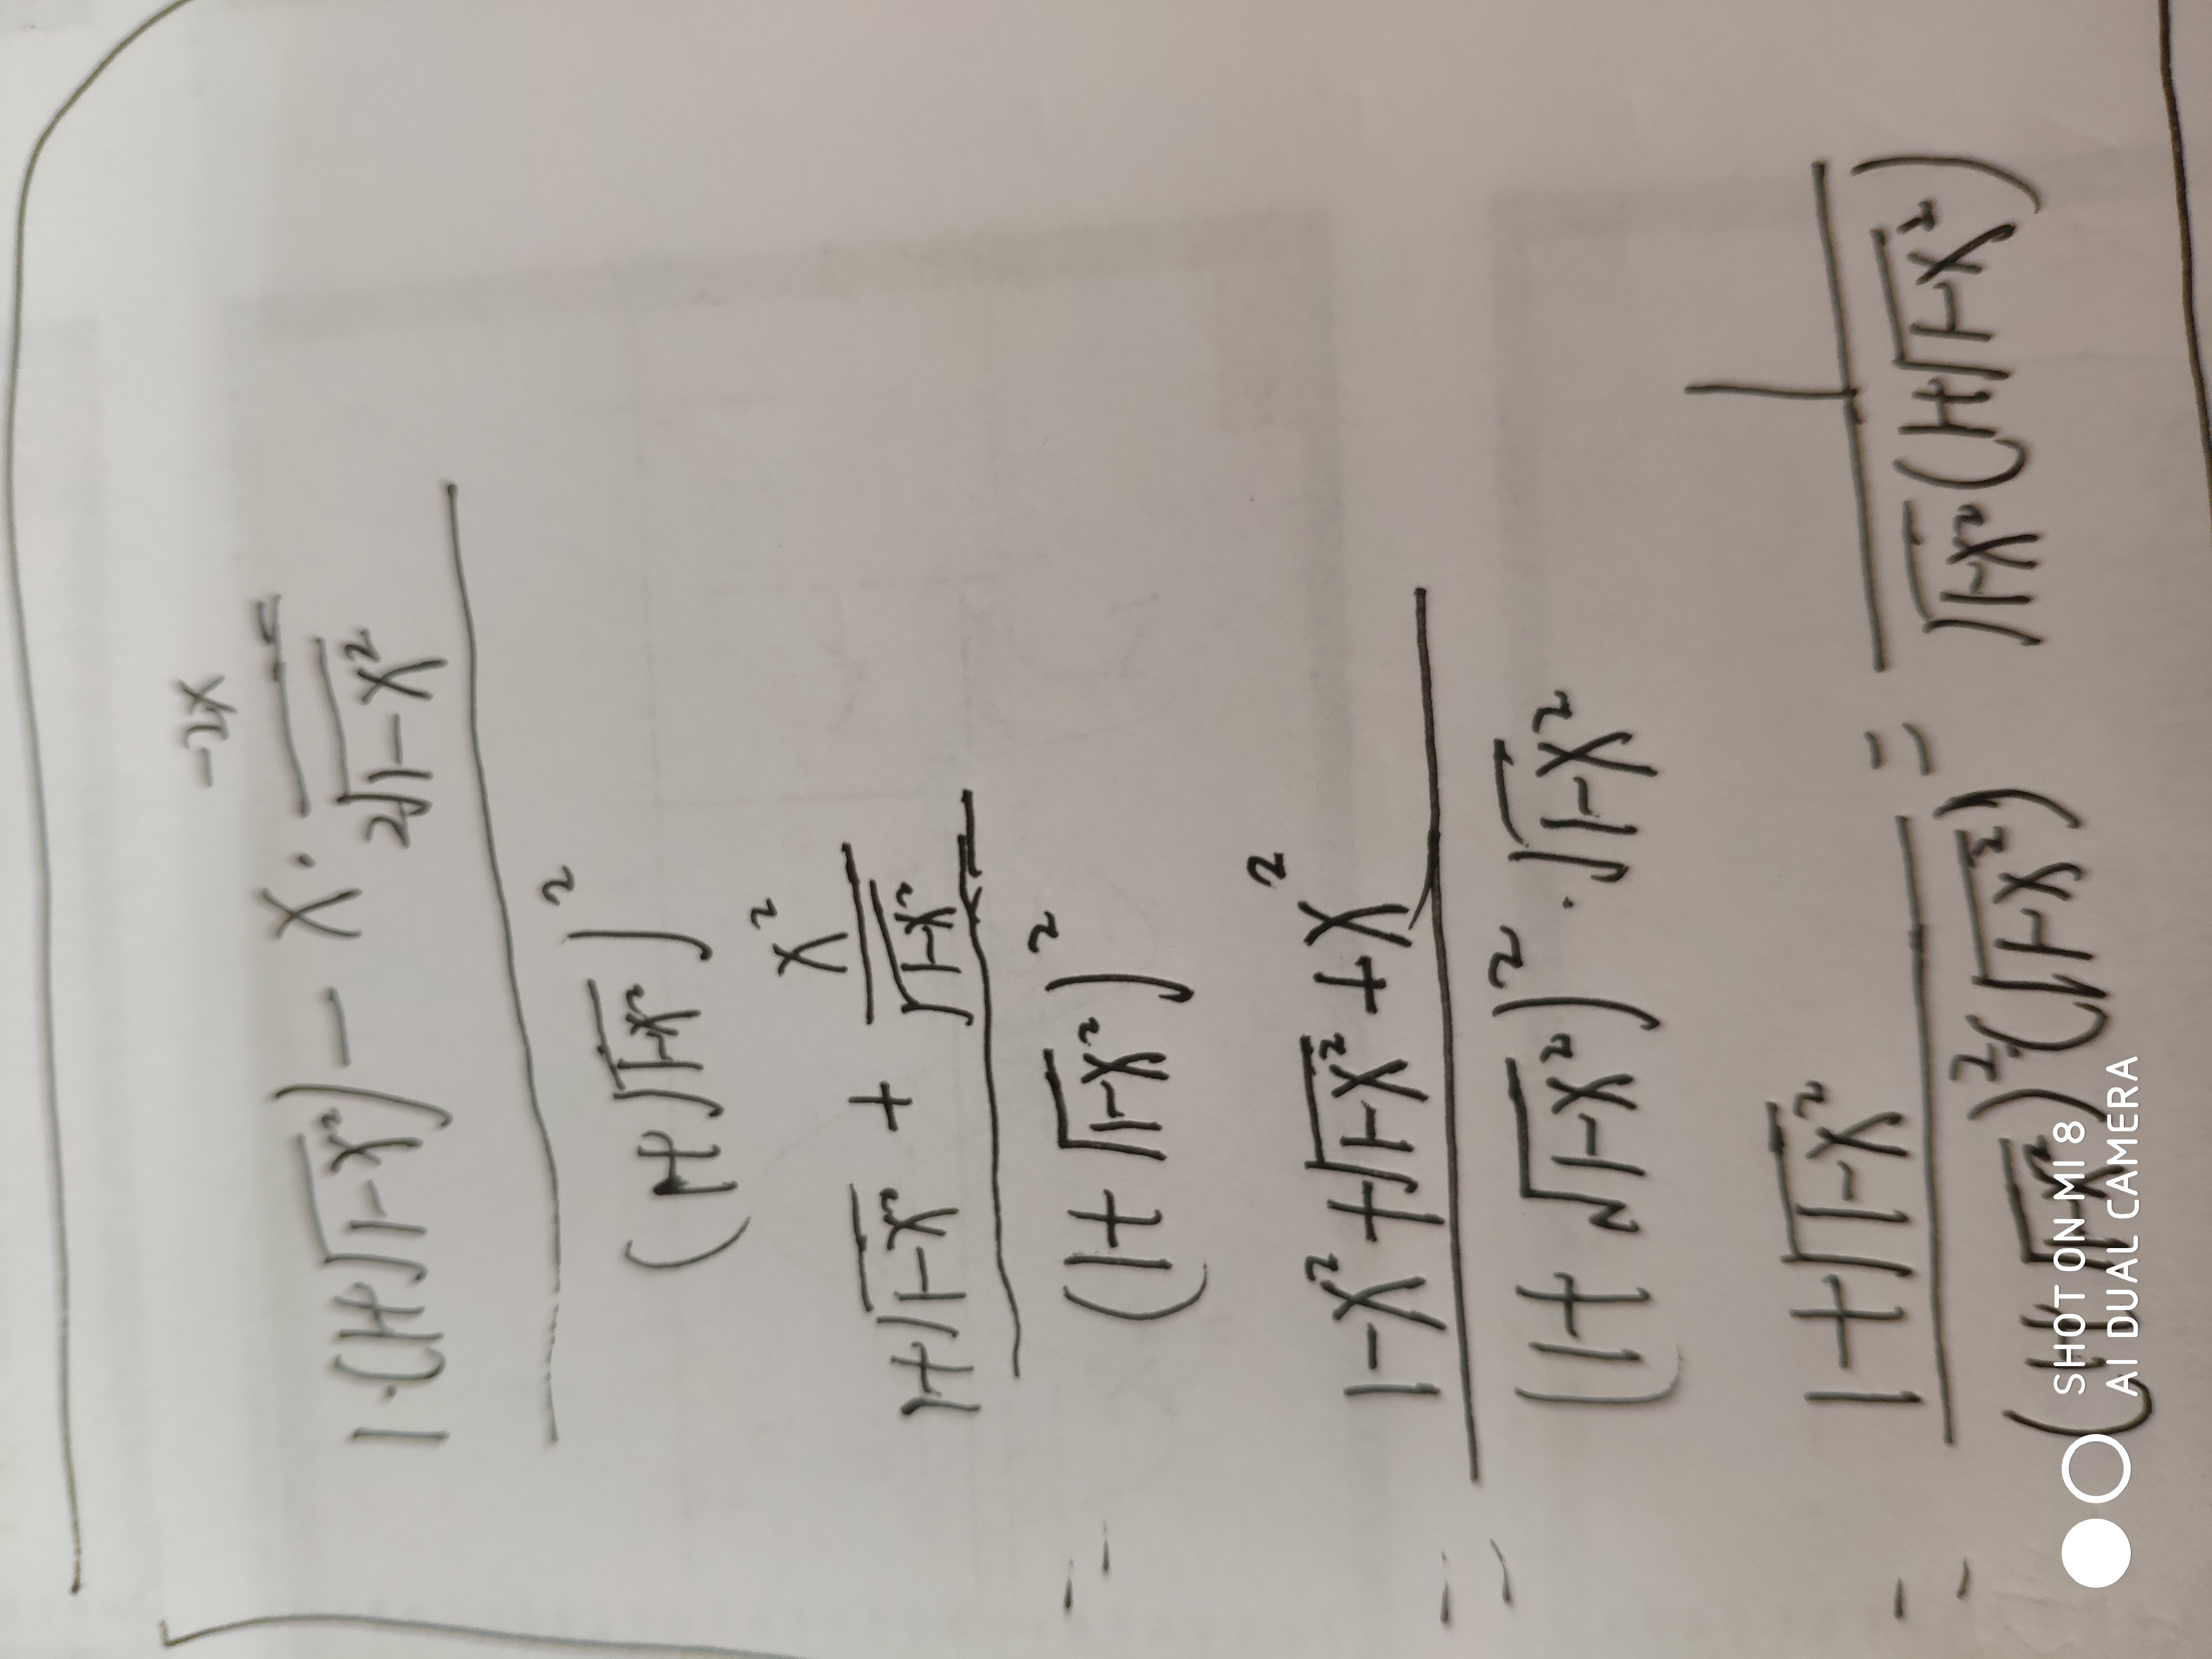 1·(1+√(1-x²)) - x · (-2x)/(2√(1-x²))
(1+√(1-x²))²
= 1+√(1-x²) + x²/√(1-x²)
(1+√(1-x²))²
= 1-x²+√(1-x²)+x²
(1+√(1-x²))² · √(1-x²)
= 1+√(1-x²) / (1+√(1-x²))²·(√(1-x²)) = 1 / √(1-x²)(1+√(1-x²))
SHOT ON MI 8
AI DUAL CAMERA